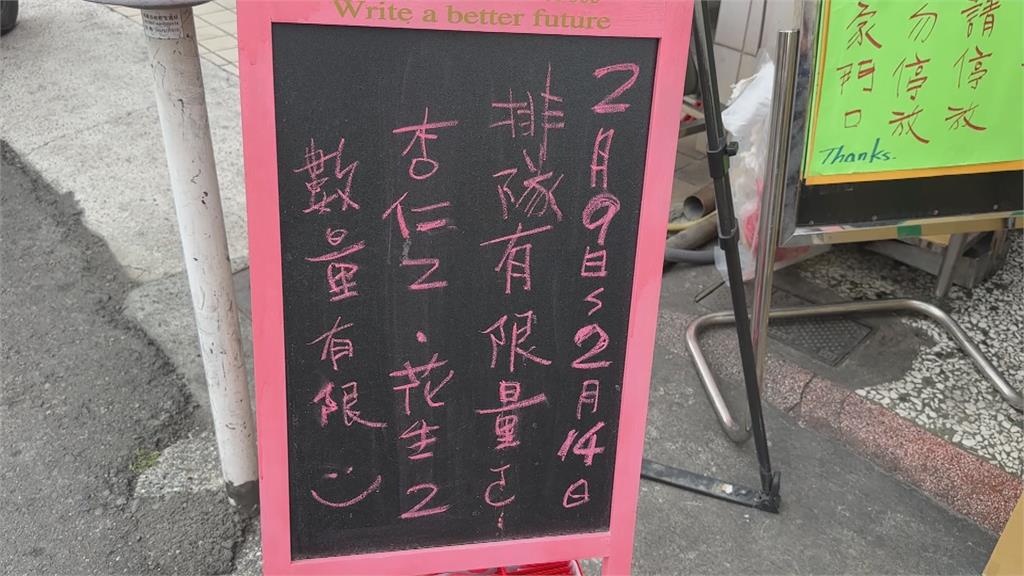 Write a better future
2月9日~2月14日
排隊有限量
杏仁2.花生2
數量有限
請停放
勿停放
家門口
Thanks.